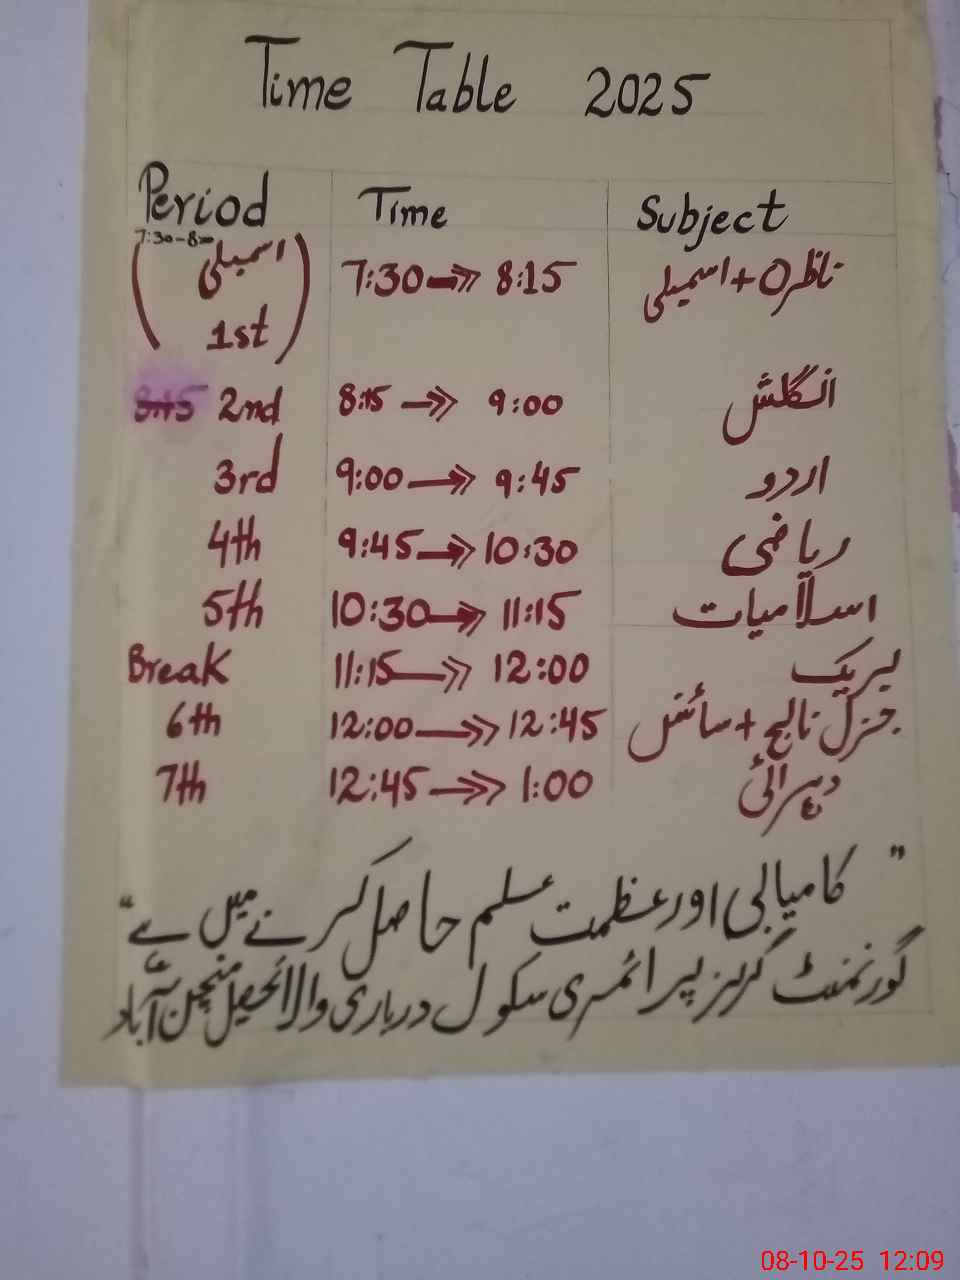 Time Table 2025
Period Time Subject
7:30-8:00
اسمبلی
1st 7:30 → 8:15 ناظرہ + اسمبلی
8:15 2nd 8:15 → 9:00 انگلش
3rd 9:00 → 9:45 اردو
4th 9:45 → 10:30 ریاضی
5th 10:30 → 11:15 اسلامیات
Break 11:15 → 12:00 بریک
6th 12:00 → 12:45 جنرل نالج + سائنس
7th 12:45 → 1:00 دہرائی
"کامیابی اور عظمت علم حاصل کرنے میں ہے"
گورنمنٹ گرلز پرائمری سکول درباری والا تحصیل منچن آباد
08-10-25 12:09